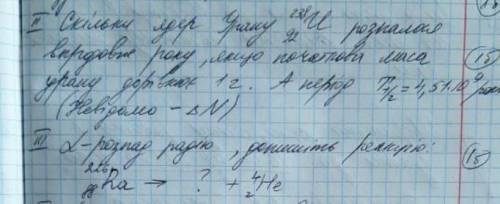 II Скільки ядер Урану ²³⁸₉₂U розпалося
впродовж року, якщо початкова маса
урану дорівнює 1 г. А період T₁/₂ = 4,51·10⁹ років
(Невідомо – ΔN)
15
III α-розпад радію, допишіть реакцію:
15
²²⁶₈₈Ra → ? + ⁴₂He